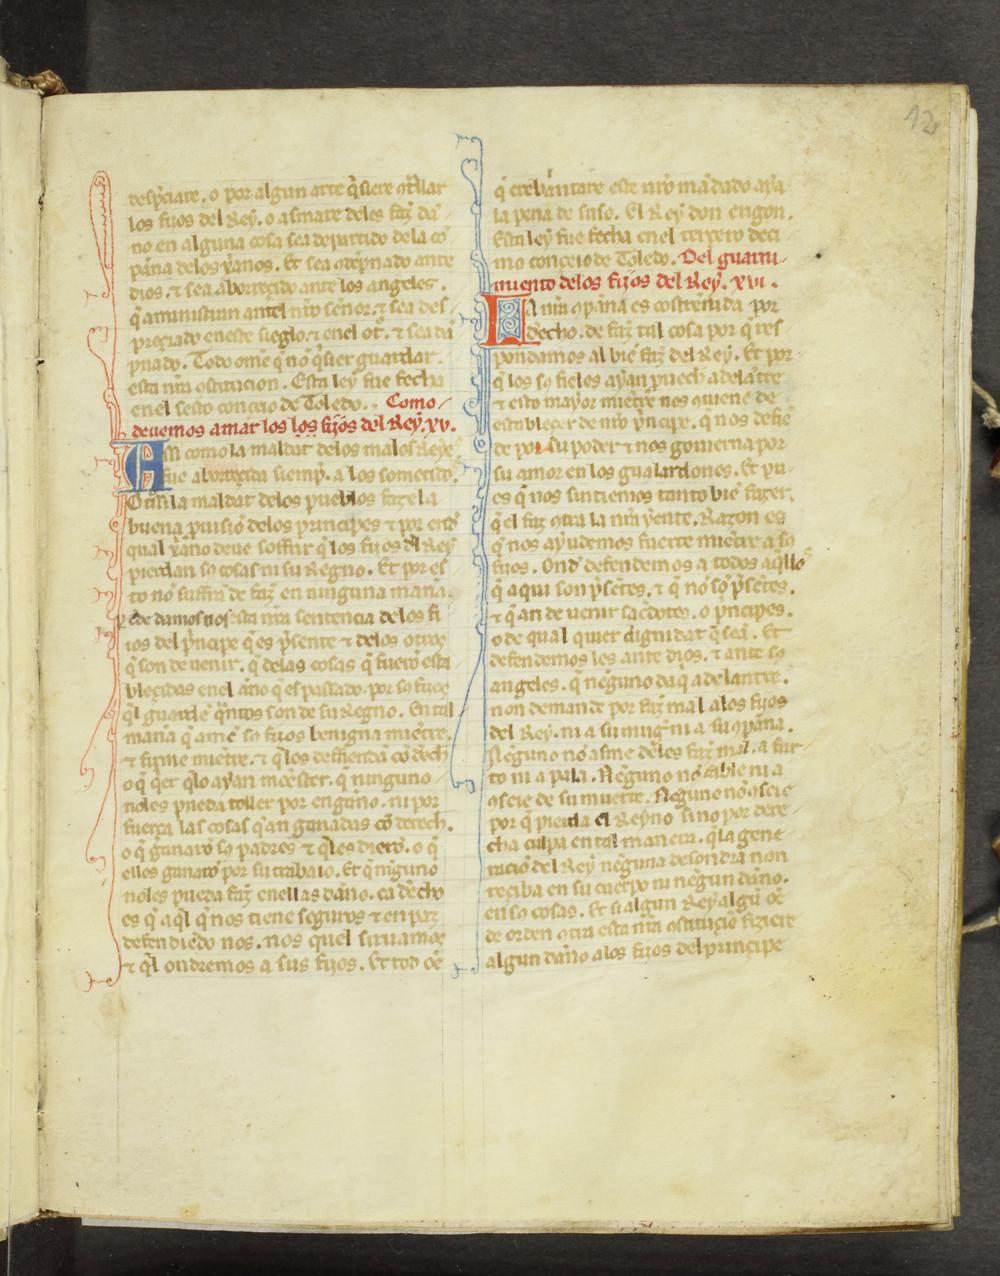 12
desp̃ciare. o por algun arte q̃siere ꝯt̃llar
los fijos del Rey. o asmare deles faz̃ da᷈
no en alguna cosa sea departido dela co᷈
pãna delos xp̃anos. Et sea ꝯdep̃nado ante
dios. ⁊ sea aborreçido ante los angeles.
q̃ aministran antel nr̃o señor. ⁊ sea des
preçiado eneste sieglo. ⁊ enel ot̃. ⁊ sea dã
pnado. Todo om̃e q̃ no q̃sier guardar.
esta nr̃a ꝯstitucion. Esta ley fue fecha
enel sesto conçeio de Toledo. Como
deuemos amar los los fijos del Rey. xv.
Asi como la maldat delos malos Reyes
fue aborreçida siemp̃. a los sometidos
Otr̃si la maldat delos pueblos faze la
buena p̃uisiõ delos principes ⁊ por end̃
qual xp̃ano deue soffrir q̃ los fijos d̃l Rey
pierdan sꝯ cosas ni su Regno. Et por es
to nõ suffrã de faz̃ en ninguna mañã.
⁊ de damos nos esta nr̃a sentencia de los fi
ios del p̃ncipe q̃ es p̃sente ⁊ delos otros
q̃ son de uenir. q̃ delas cosas q̃ fuerõ esta
bleçidas enel año q̃ es passado. por sꝯ fijos
q̃l guardẽ q̃ntos son de su Regno. En tal
mañã q̃ amẽ sꝯ fijos benigna mient̃re.
⁊ firme mient̃re. ⁊ q̃ los deffiendã cõ d̃ech̃
o q̃ q̃er q̃lo ayan mẽester. q̃ ninguno
noles pueda toller por engaño. ni por
fuerça las cosas q̃ an ganadas cõ derech̃.
o q̃ ganarõ sꝯ padres ⁊ q̃les dierõ. o q̃
ellos ganarõ por su trabaio. Et q̃ ninguno
noles pueda faz̃ enellas daño. ca d̃echo
es q̃ aq̃l q̃ nos tiene seguros ⁊ en paz
defendiẽdo nos. nos quel siruamos
⁊ q̃l ondremos a sus fijos. Et tod oẽ
q̃ crebantare este nr̃o mãdado aya
la pena de suso. El Rey don eugon.
Esta ley fue fecha enel terçero deci
mo conçeio de Toledo. Del guarni
miento delos fijos del Rey. xvi.
La nr̃a ꝯp̃ana es costrenida por
d̃echo. de faz̃ tal cosa por q̃ res
pondamos al biẽ faz̃ del Rey. Et por
q̃ los sꝯ fieles ayan prouech adelãtre
⁊ esto mayor mientre nos quiene de
establecer de nr̃o p̃ncipe. q̃ nos defiẽ
de por su poder ⁊ nos gouierna por
su amor en los gualardones. Et pu
es q̃ nos sintiemos tanto biẽ fazer.
q̃ el faz ꝯtra la nr̃a yente. Razon es
q̃ nos ayudemos fuerte mientre a sꝯ
fijos. Ond̃ defendemos a todos aq̃llos
q̃ aqui son p̃sẽtes. ⁊ q̃ nõ sõ p̃sẽtes.
⁊ q̃ an de uenir sac̃dotes. o p̃ncipes.
o de qual quier dignidat q̃ seã. Et
defendemos les ante dios. ⁊ ante sꝯ
angeles. q̃ neguno daq̃ adelantre.
non demande por faz̃ mal alos fijos
del Rey. ni a su mug̃. ni a su ꝯp̃ana.
Neguno nõ asme deles faz̃ mal. a fur
to ni a pala. Neguno nõ fable ni a
ꝯseie de su muerte. Neguno nõ ꝯseie
por q̃ pierda el Reyno sino por dere
cha culpa en tal manera. q̃ la gene
raciõ del Rey neguna desondra non
reçiba en su cuerpo ni negun daño.
en sꝯ cosas. Et si algun Rey algũ oẽ
de orden ꝯtra esta nr̃a ꝯstituçiõ fiziere
algun daño alos fijos del prinçipe